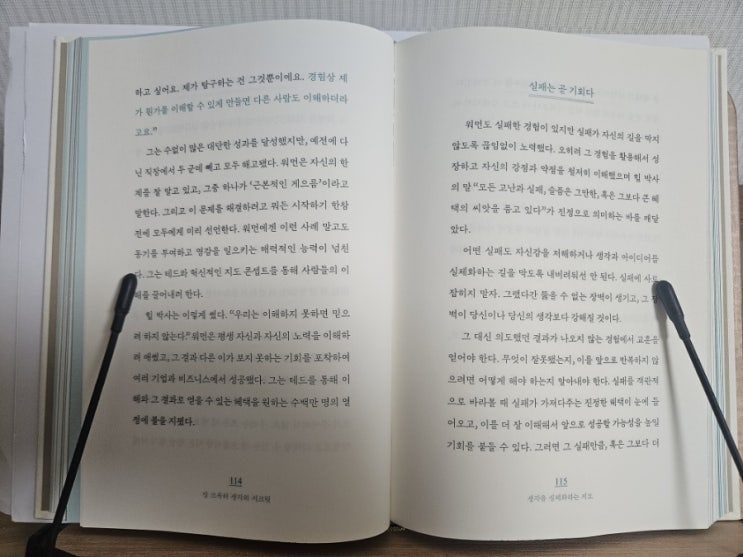 하고 싶어요. 제가 탐구하는 건 그것뿐이에요. 경험상 제
가 뭔가를 이해할 수 있게 만들면 다른 사람도 이해하더라
고요.”
그는 수없이 많은 대단한 성과를 달성했지만, 예전에 다
닌 직장에서 두 군데 빼고 모두 해고됐다. 워먼은 자신의 한
계를 잘 알고 있고, 그중 하나가 ‘근본적인 게으름’이라고
말한다. 그리고 이 문제를 해결하려고 뭐든 시작하기 한참
전에 모두에게 미리 선언한다. 워먼에겐 이런 사례 말고도
동기를 부여하고 영감을 일으키는 매력적인 능력이 넘친
다. 그는 테드와 혁신적인 지도 콘셉트를 통해 사람들의 이
해를 끌어내려 한다.
힐 박사는 이렇게 썼다. “우리는 이해하지 못하면 믿으
려 하지 않는다.” 워먼은 평생 자신과 자신의 노력을 이해하
려 애썼고, 그 결과 다른 이가 보지 못하는 기회를 포착하여
여러 기업과 비즈니스에서 성공했다. 그는 테드를 통해 이
해와 그 결과로 얻을 수 있는 혜택을 원하는 수백만 명의 열
정에 불을 지폈다.
114
생각의 시크릿
실패는 곧 기회다
워먼도 실패한 경험이 있지만 실패가 자신의 길을 막지
않도록 끊임없이 노력했다. 오히려 그 경험을 활용해서 성
장하고 자신의 강점과 약점을 철저히 이해했으며 힐 박사
의 말 “모든 고난과 실패, 슬픔은 그만한, 혹은 그보다 큰 혜
택의 씨앗을 품고 있다”가 진정으로 의미하는 바를 깨달
았다.
어떤 실패도 자신감을 저해하거나 생각과 아이디어를
실체화하는 길을 막도록 내버려둬선 안 된다. 실패에 사로
잡히지 말자. 그랬다간 뚫을 수 없는 장벽이 생기고, 그 장
벽이 당신이나 당신의 생각보다 강해질 것이다.
그 대신 의도했던 결과가 나오지 않는 경험에서 교훈을
얻어야 한다. 무엇이 잘못됐는지, 이를 앞으로 반복하지 않
으려면 어떻게 해야 하는지 알아내야 한다. 실패를 객관적
으로 바라볼 때 실패가 가져다주는 진정한 혜택이 눈에 들
어오고, 이를 더 잘 이해해서 앞으로 성공할 가능성을 높일
기회를 붙들 수 있다. 그러면 그 실패만큼, 혹은 그보다 더
115
생각을 실체화하는 지도